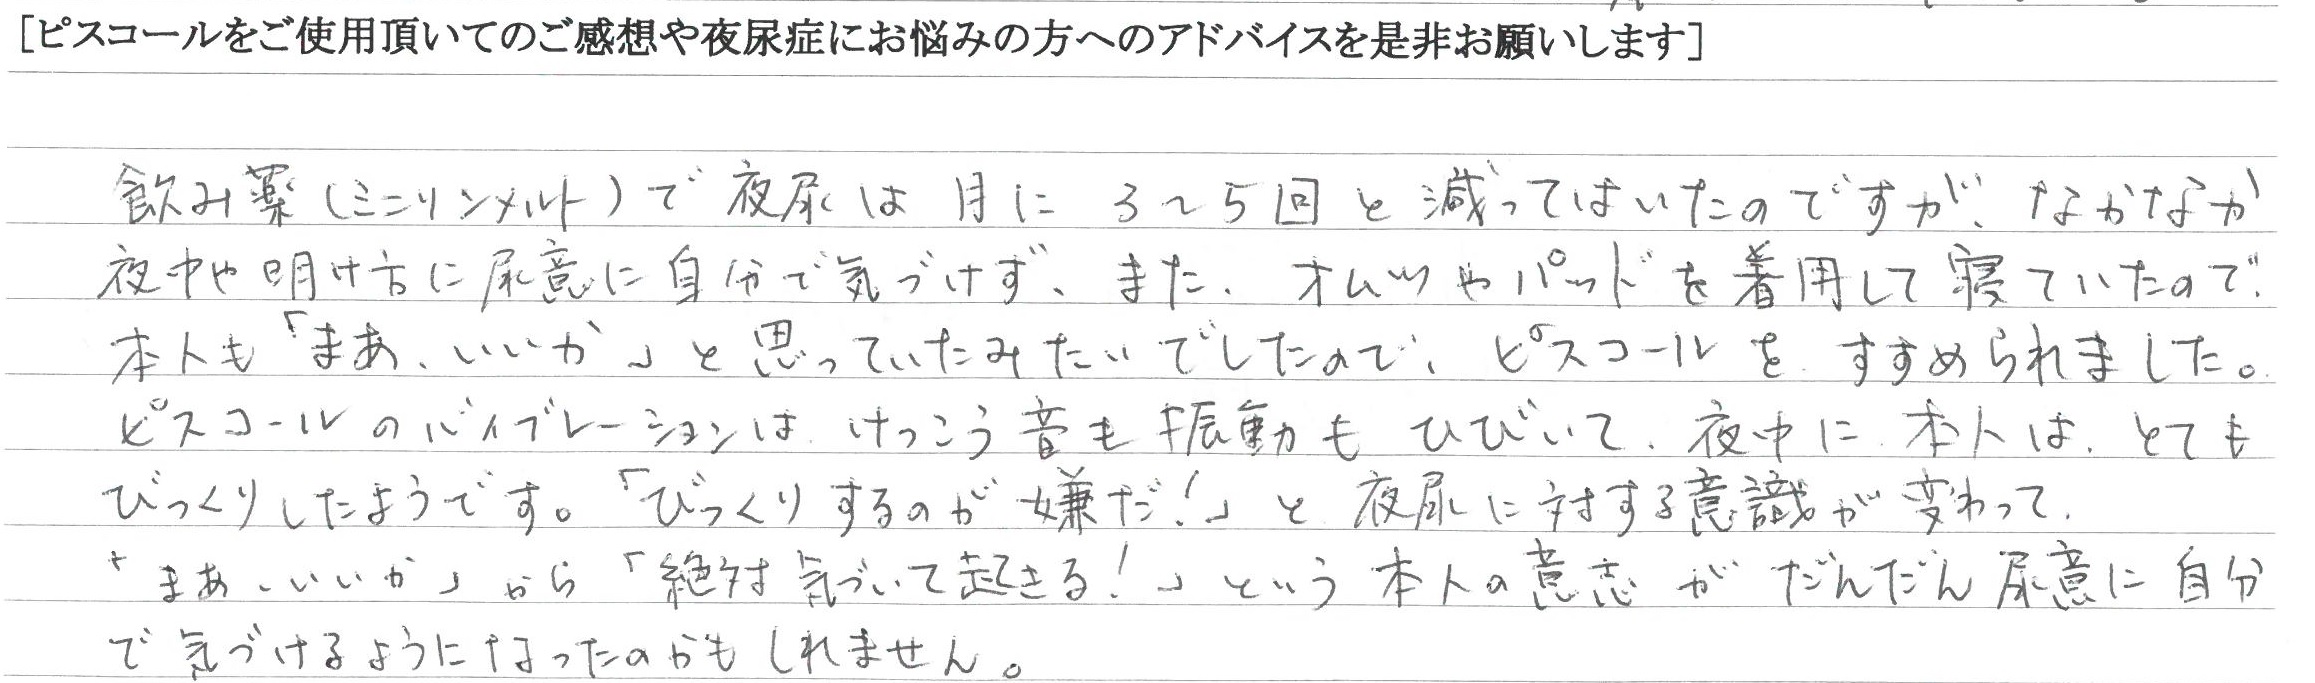 [ピスコールをご使用頂いてのご感想や夜尿症にお悩みの方へのアドバイスを是非お願いします]
飲み薬(ミニリンメルト)で夜尿は月に3~5回と減ってはいたのですが、なかなか
夜中や明け方に尿意に自分で気づけず、また、オムツやパッドを着用して寝ていたので、
本人も「まあ、いいか」と思っていたみたいでしたので、ピスコールをすすめられました。
ピスコールのバイブレーションは、けっこう音も振動もひびいて、夜中に、本人は、とても
びっくりしたようです。「びっくりするのが嫌だ!」と夜尿に対する意識が変わって、
「まあ、いいか」から「絶対気づいて起きる!」という本人の意志がだんだん尿意に自分
で気づけるようになったのかもしれません。